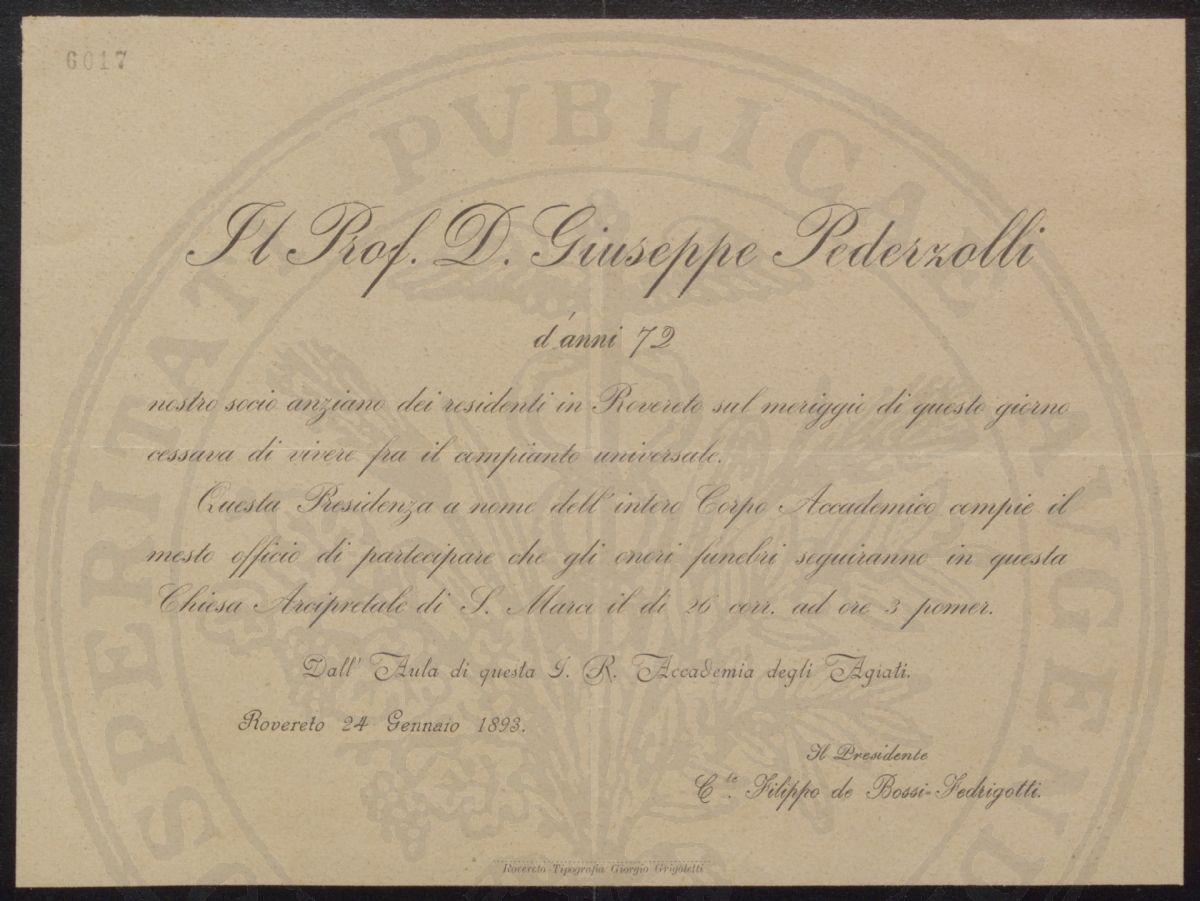 6017
PVBLICAE
SPERITAT.
AVGEN
Il Prof. D. Giuseppe Pederzolli
d'anni 72
nostro socio anziano dei residenti in Rovereto sul meriggio di questo giorno
cessava di vivere fra il compianto universale.
Questa Presidenza a nome dell' intero Corpo Accademico compie il
mesto officio di partecipare che gli onori funebri seguiranno in questa
Chiesa Arcipretale di S. Marco il di 26 corr. ad ore 3 pomer.
Dall' Aula di questa I. R. Accademia degli Agiati.
Rovereto 24 Gennaio 1893.
Il Presidente
C.te Filippo de Bossi-Fedrigotti.
Rovereto Tipografia Giorgio Grigoletti